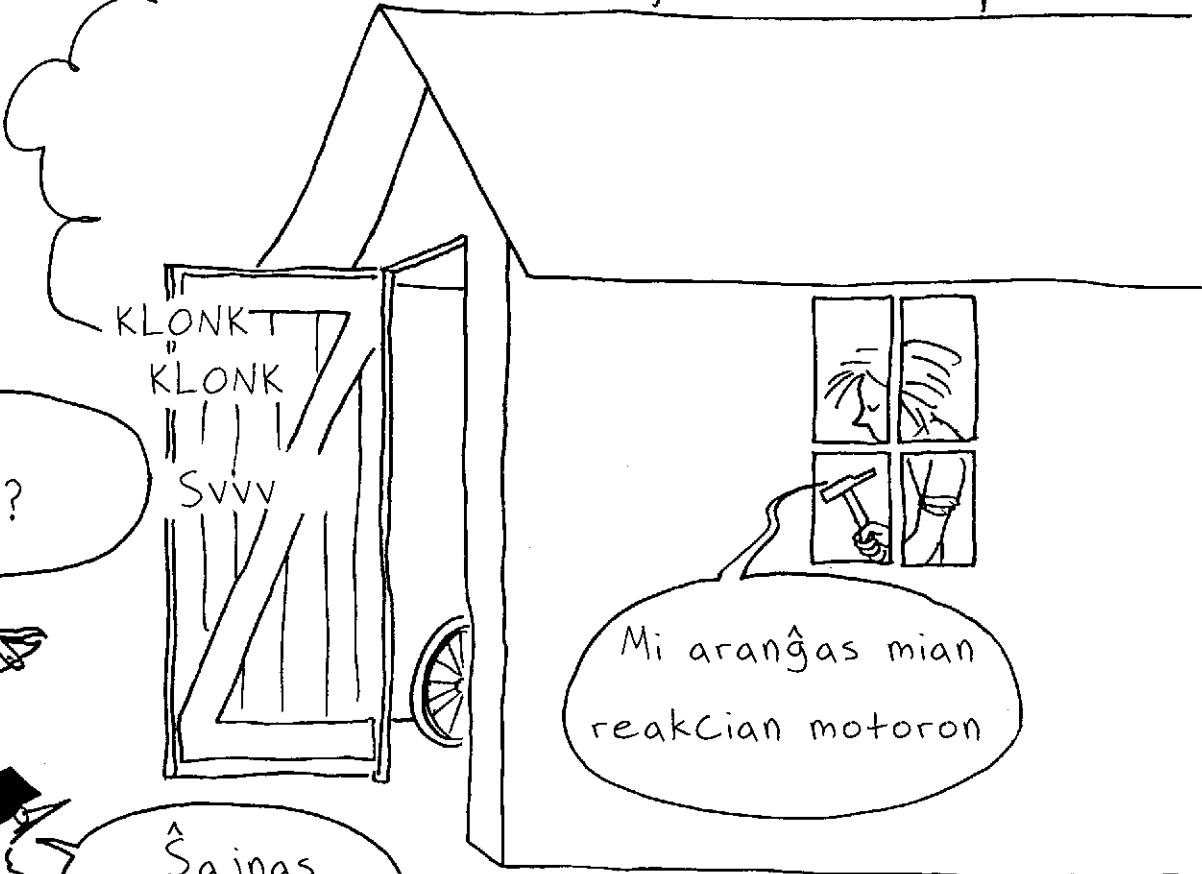 KLONK
KLONK
Svvv
?
Mi aranĝas mian
reakcian motoron
Ŝajnas